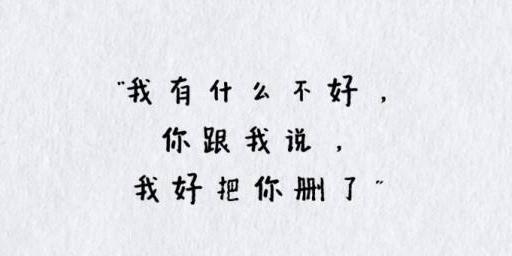 “我有什么不好，
你跟我说，
我好把你删了”